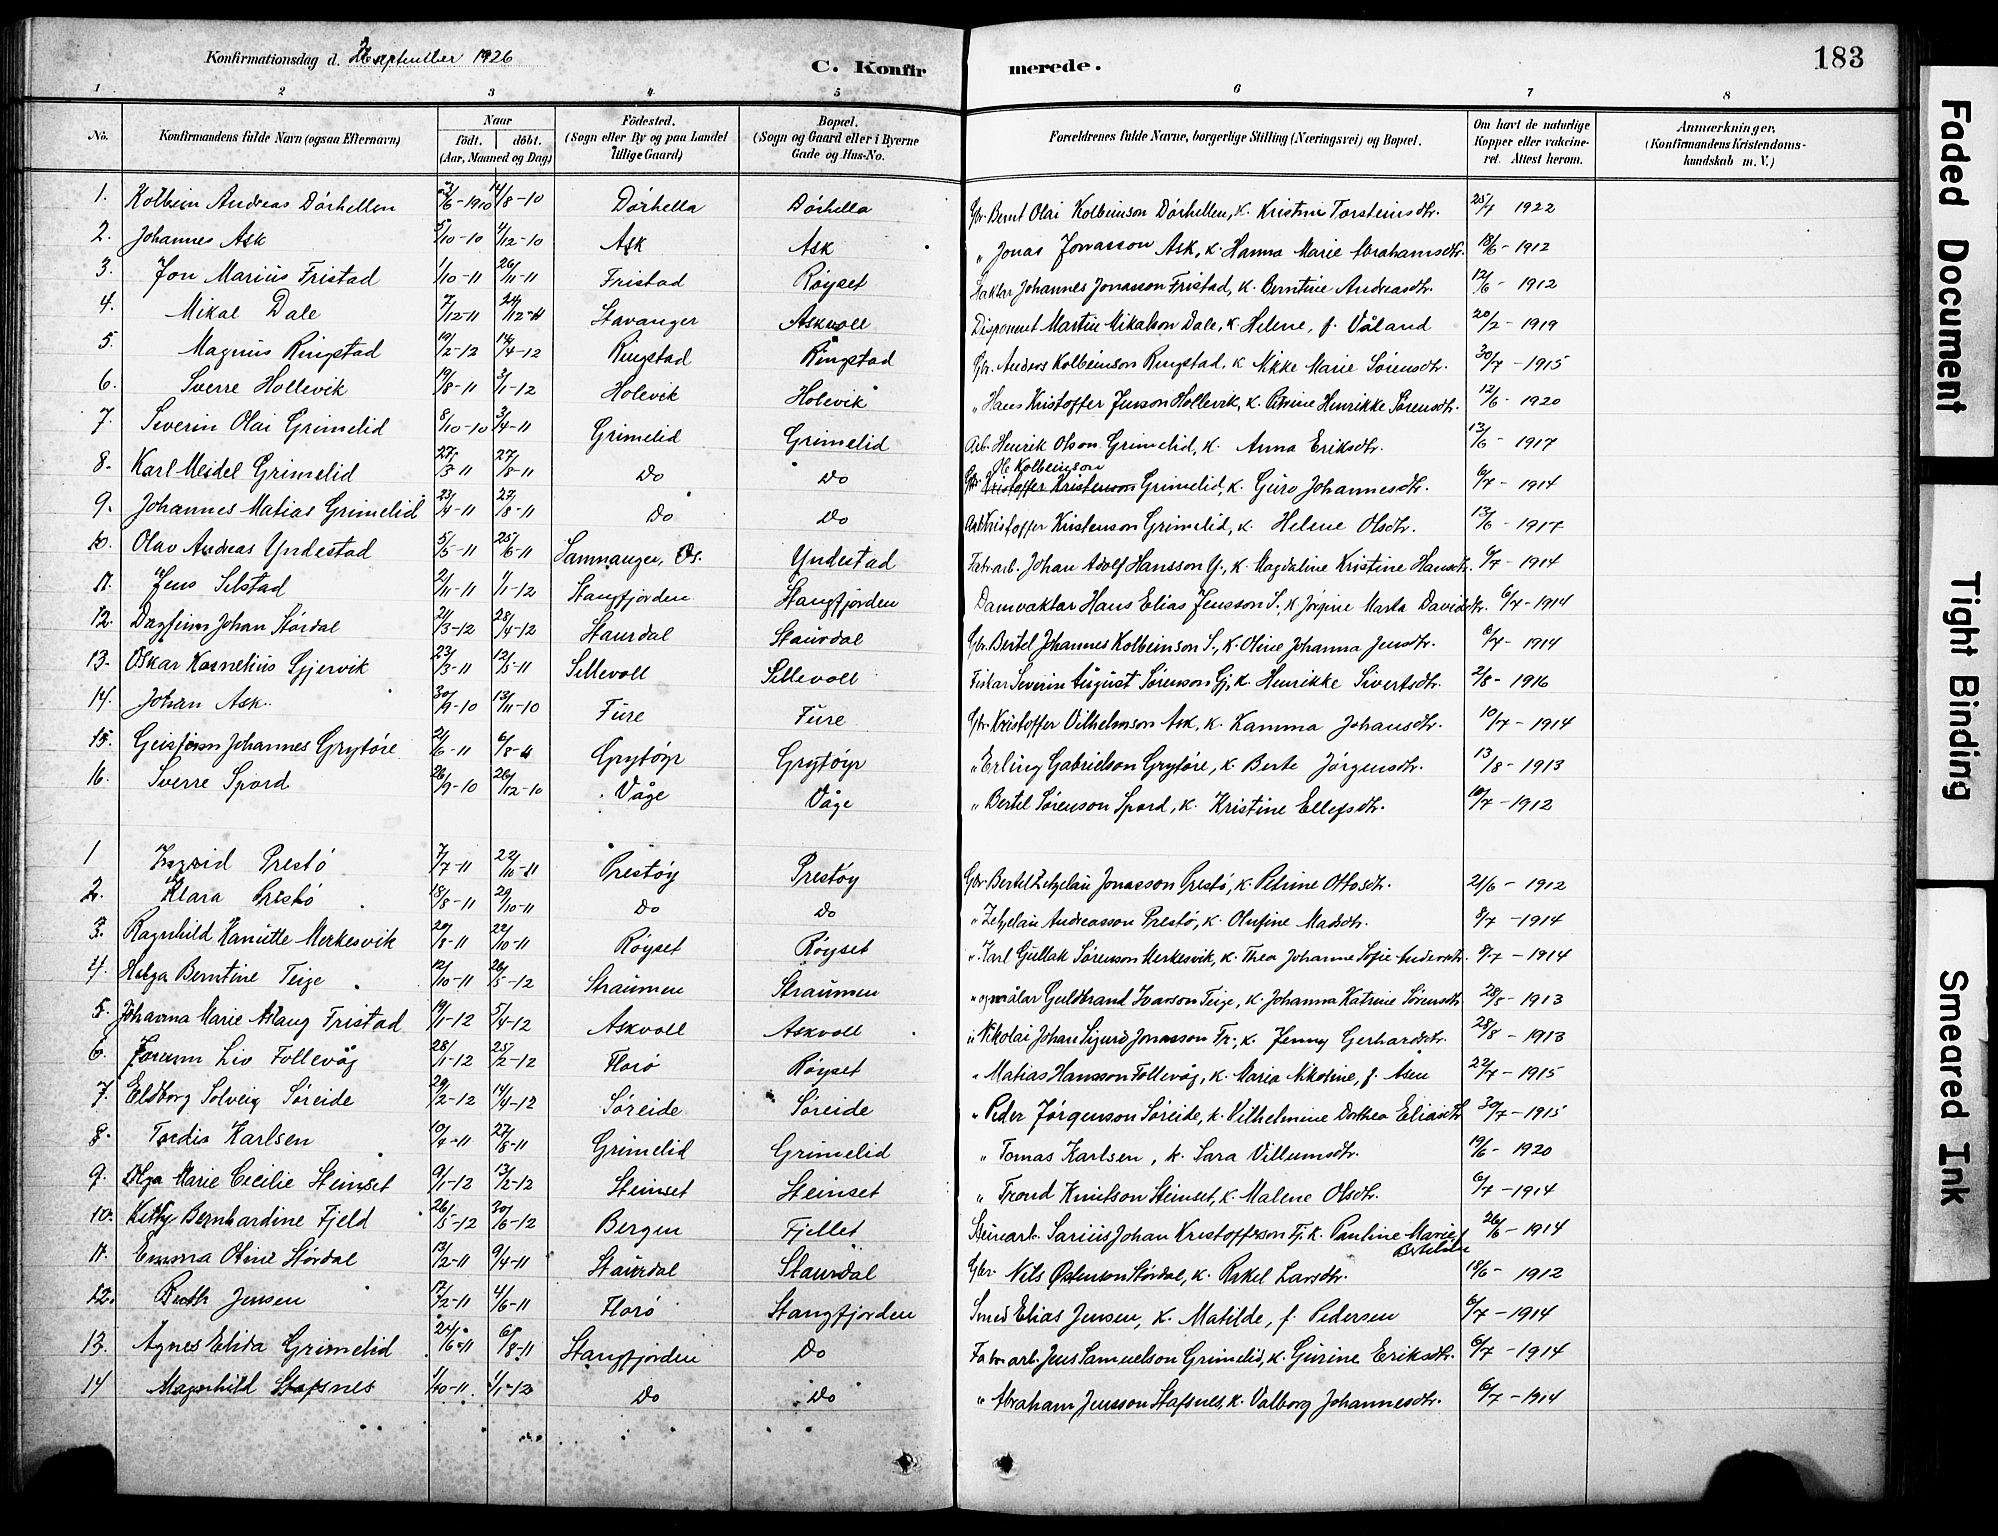 Konfirmationsdag d. September 1926
C. Konfirmerede.
183
1 2 3 4 5 6 7 8
No. Konfirmandens fulde Navn (ogsaa Efternavn) Naar født. døbt. (Aar, Maaned og Dag) Fødested. (Sogn eller By og paa Landet tillige Gaard) Bopæl. (Sogn og Gaard eller i Byerne Gade og Hus-No. Forældrenes fulde Navne, borgerlige Stilling (Næringsvei) og Bopæl. Om havt de naturlige Kopper eller vakcineret. Attest herom. Anmærkninger. (Konfirmandens Kristendomskundskab m. V.)
1. Kolbein Andreas Dörhellen 3/6-1910 14/8-10 Dörhella Dörhella Gbr. Bernt Olai Kolbeinson Dörhellen, K. Kristine Torsteinsdtr. 25/7 1922
2. Johannes Ask 5/10-10 4/12-10 Ask Ask " Jonas Jonasson Ask, K. Hanna Marie Abrahamsdtr. 18/6-1912
3. Jon Marius Fristad 1/10-11 26/11-11 Fristad Röyset Johannes Jonasson Fristad, K. Berntine Andreasdtr. 12/6-1912
4. Mikal Dale 7/12-11 24/12-11 Stavanger Askvoll Disponent Martin Mikalson Dale, K. Helene, f. Våland 20/2-1919
5. Magnus Ringstad 19/2-12 14/4-12 Ringstad Ringstad Gbr. Anders Kolbeinson Ringstad, K. Mikke Marie Sörensdtr. 30/7-1915
6. Sverre Hollevik 19/8-11 3/1-12 Holevik Holevik " Hans Kristoffer Jenson Hollevik, K. Petrine Henrikke Sörensdtr. 12/6-1920
7. Severin Olai Grimelid 8/10-10 3/4-11 Grimelid Grimelid Arb. Henrik Olson Grimelid, K. Anna Eriksdtr. 13/6-1917
8. Karl Meidel Grimelid 27/3-11 27/8-11 Do Do Gbr. Kristoffer Kristenson Ole Kolbeinson Grimelid, K. Guro Johannesdtr. 6/7-1914
9. Johannes Matias Grimelid 23/4-11 27/8-11 Do Do Arb. Kristoffer Kristenson Grimelid, K. Helene Olsdtr. 13/6-1917
10. Olav Andreas Yndestad 5/5-11 25/6-11 Samnanger, Os. Yndestad Fabr.arb. Johan Adolf Hansson Y., K. Magdaline Kristine Hansdtr. 6/7-1914
11. Jens Selstad 2/11-11 1/1-12 Stangfjorden Stangfjorden Damvaktar Hans Elias Jensson S., K. Jörgine Marta Davidsdtr. 6/7-1914
12. Dagfinn Johan Stördal 21/3-12 28/4-12 Staurdal Staurdal Gbr. Bertel Johannes Kolbeinson S., K. Oline Johanna Jensdtr. 6/7-1914
13. Oskar Kornelius Gjervik 23/3-11 12/5-11 Sellevoll Sellevoll Fiskar Severin August Sörenson Gj., K. Henrikke Sivertsdtr. 2/8-1916
14. Johan Ask 30/9-10 13/11-10 Fure Fure Gbr. Kristoffer Vilhelmson Ask, K. Kamma Johansdtr. 10/7-1914
15. Johannes Grytöre 21/6-11 6/8-11 Grytöyr Grytöyr " Erling Gabrielson Grytöre, K. Berte Jörgensdtr. 13/8-1913
16. Sverre Spord 26/9-10 26/12-10 Våge Våge " Bertel Sörenson Spord, K. Kristine Ellefsdtr. 10/7-1912
1 Ingrid Prestö 7/7-11 22/10-11 Prestöy Prestöy Gbr. Bertel Zetzelau Jonasson Prestö, K. Petrine Ottosdtr. 21/6-1912
2. Klara Prestö 18/8-11 29/10-11 Do Do " Zetzelau Andreasson Prestö, K. Olufine Madsdtr. 8/7-1914
3. Ragnhild Hanutte Merkesvik 20/8-11 22/10-11 Röyset Röyset " Karl Gullak Sörenson Merkesvik, K. Thea Johanne Sofie Andersdtr. 8/7-1914
4. Helga Berntine Teige 12/10-11 26/5-12 Straumen Straumen " og målar Guldbrand Ivarson Teige, K. Johanna Katrine Sörensdtr. 28/8-1913
5. Johanna Marie Aslaug Fristad 19/1-12 5/4-12 Askvoll Askvoll " Nikolai Johan Sigurd Jonasson Fr., K. Jenny Gerhardsdtr. 28/8-1913
6. Jorunn Liv Follevåg 28/1-12 25/2-12 Florö Röyset " Matias Hansson Follevåg, K. Maria Nikoline, f. Åsen 22/7-1915
7. Eldborg Solveig Söreide 29/2-12 14/4-12 Söreide Söreide " Peder Jörgenson Söreide, K. Vilhelmine Dorthea Eliasdtr. 30/7-1915
8. Tordis Karlsen 10/4-11 27/8-11 Grimelid Grimelid " Tomas Karlsen, K. Sara Villumsdtr. 19/6-1920
9. Olga Marie Cecilie Steinset 9/1-12 13/2-12 Steinset Steinset " Trond Knutson Steinset, K. Malene Olsdtr. 6/7-1914
10. Kitty Bernhardine Fjeld 26/5-12 30/6-12 Bergen Fjellet Steinarb. Sarius Johan Kristofferson Fj. K. Pauline Marie f. Bertelsen 26/6-1914
11. Emma Oline Stördal 13/2-11 9/4-11 Staurdal Staurdal Gbr. Nils Östenson Stördal, K. Rakel Larsdtr. 18/6-1912
12. Ruth Jensen 17/2-11 4/6-11 Florö Stangfjorden Smed Elias Jensen, K. Matilde, f. Pedersen 6/7-1914
13. Agnes Elida Grimelid 24/6-11 6/8-11 Stangfjorden Do Fabr.arb. Jens Samuelson Grimelid, K. Gurine Eriksdtr. 6/7-1914
14 Magnhild Stafsnes 1/10-11 1/1-12 Do Do " Abraham Jensson Stafsnes, K. Valborg Johannesdtr. 6/7-1914
Faded Document
Tight Binding
Smeared Ink